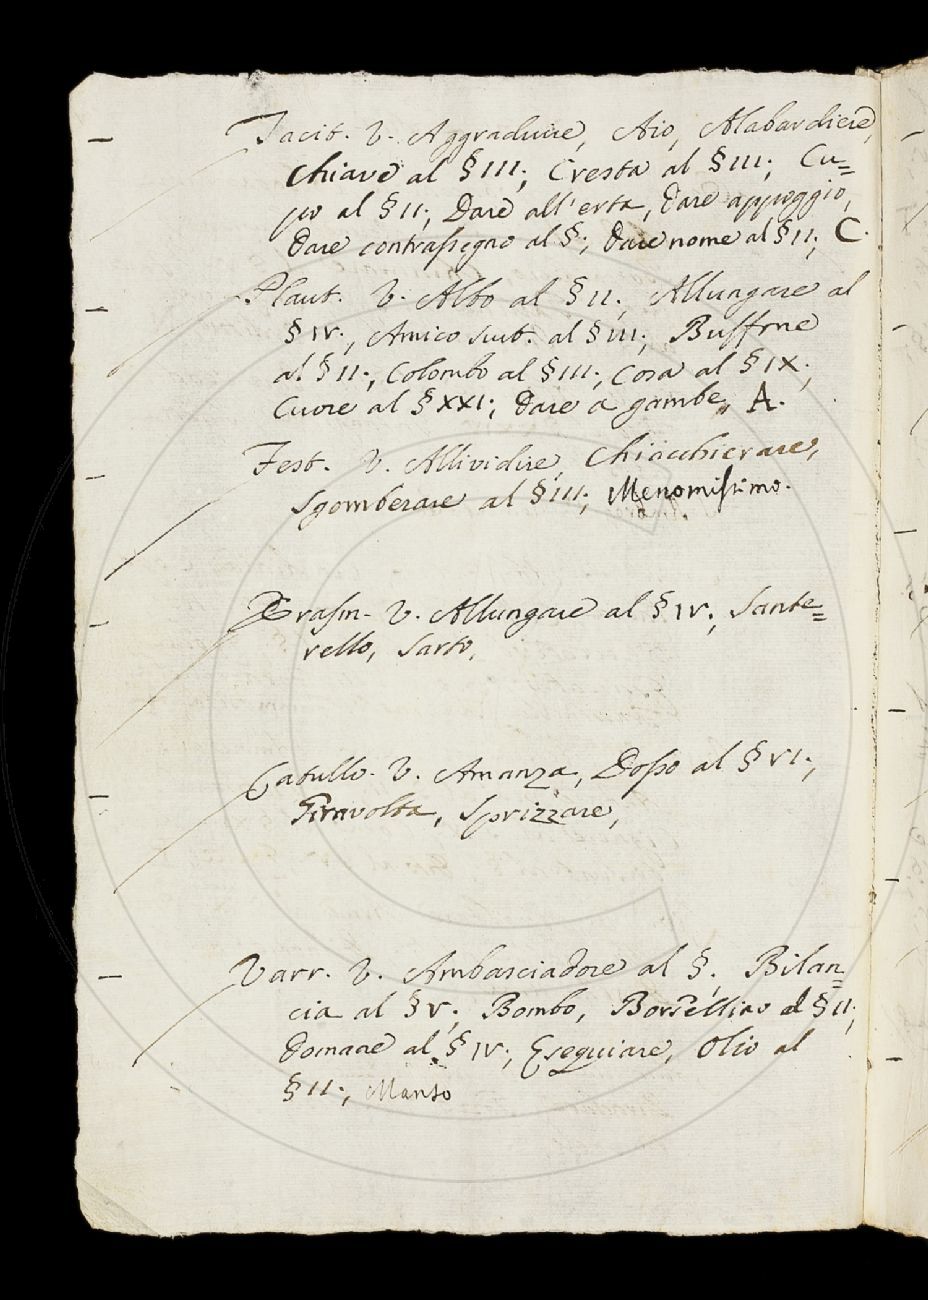 Tacit. V. Aggraduire, Aio, Alabardiere,
Chiave al § III; Cresta al § III; Cu=
po al § II; Dare all'erta, Dare appoggio,
Dare contrassegno al §; Dare nome al § II; C.
Plaut. V. Albo al § II; Allungare al
§ IV; Amico sust. al § III; Buffone
al § II; Colombo al § III; Cosa al § IX;
Cuore al § XXI; Dare a gambe, A.
Fest. V. Allividire, Chiacchierare,
Sgomberare al § III; Menomissimo.
Erasm. V. Allungare al § IV; Sante=
rello, Sarto,
Catullo. V. Amanza, Dosso al § VI;
Giravolta, Sprizzare,
Varr. V. Ambasciadore al §. Bilan=
cia al § V; Bombo, Borsellino al § II;
Domare al § IV; Esequiare, Olio al
§ II; Manto